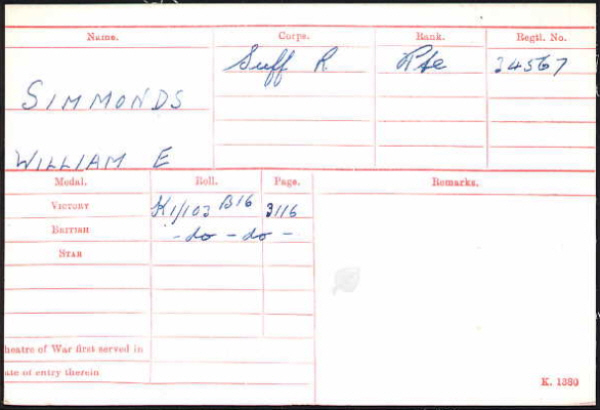 Name. Corps. Rank. Regtl. No.
Suff R Pte 34567
SIMMONDS
WILLIAM E
Medal. Roll. Page. Remarks.
VICTORY K1/103 B16 3116
BRITISH -do -do-
STAR
heatre of War first served in
ate of entry therein
K. 1380